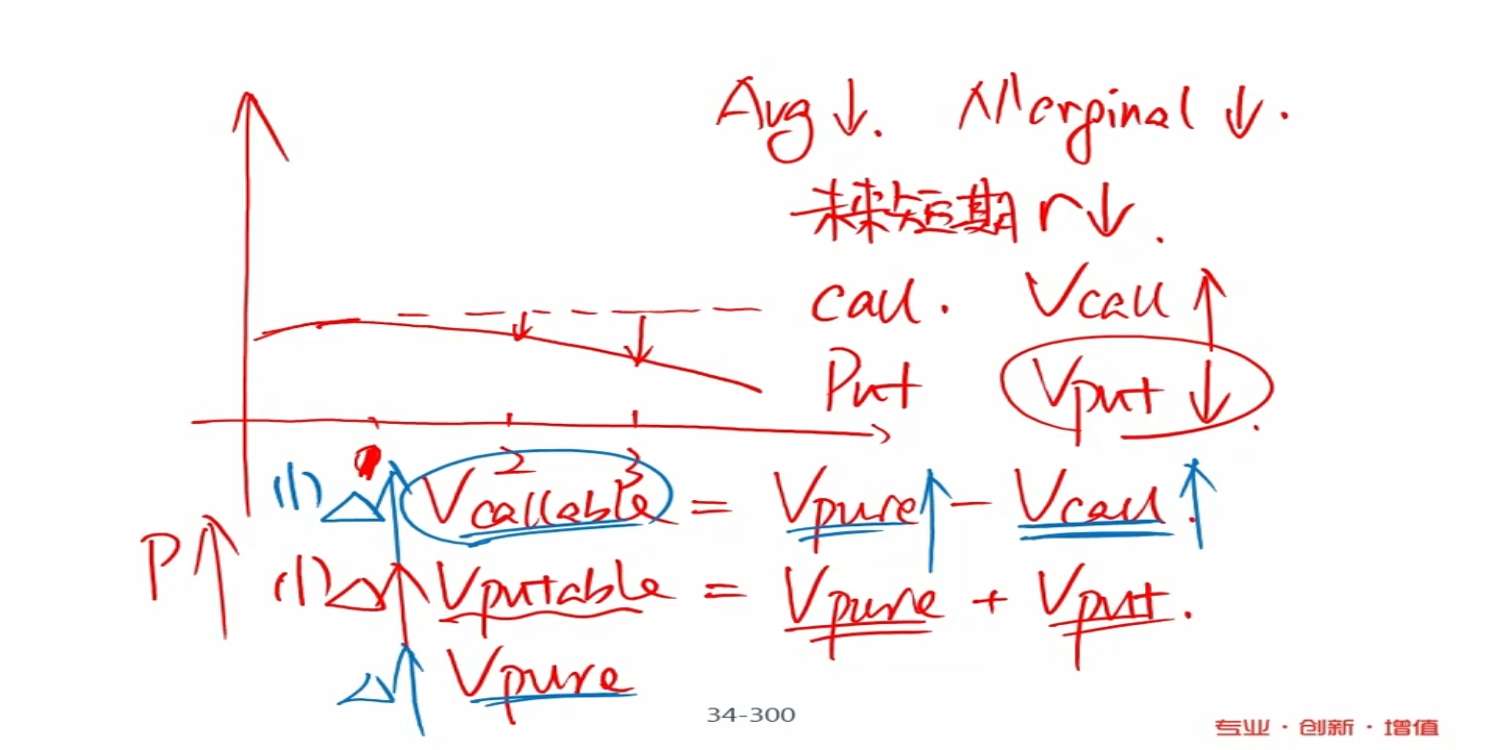 Avg ↓. Merginal ↓.
未来短期 r↓.
Call. Vcall ↑
Put Vput ↓.
2 3
(1) △ ↑ Vcallable = Vpure ↑ − Vcall ↑.
P↑ (1) △ ↑ Vputable = Vpure + Vput.
△ ↑ Vpure
34-300
专业·创新·增值